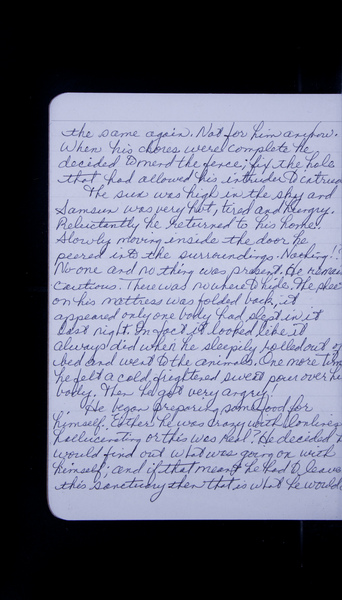 the same again. Not for him anyhow.
When his chores were complete he
decided to mend the fence; fix the hole
that had allowed his intruder
The sun was high in the sky and
Samsun was very hot, tired and Hungry.
Reluctantly he returned to his home.
Slowly moving inside the door he
peered into the surroundings. Nothing!
No one and nothing was present. He
cautious. There was no where to hide. The
on his mattress was folded back, it
appeared only one body had slept in it
last night. In fact it looked like it
always did when he sleepily rolled out
bed and went to the animals. One more
he felt a cold, frightened sweat pour over
body. Then he got very angry.
He began preparing some food for
himself. Either he was crazy with
hallucinating or this was real. He decided
would find out what was going on with
himself; and if that meant he had to leave
this sanctuary then that is what he would